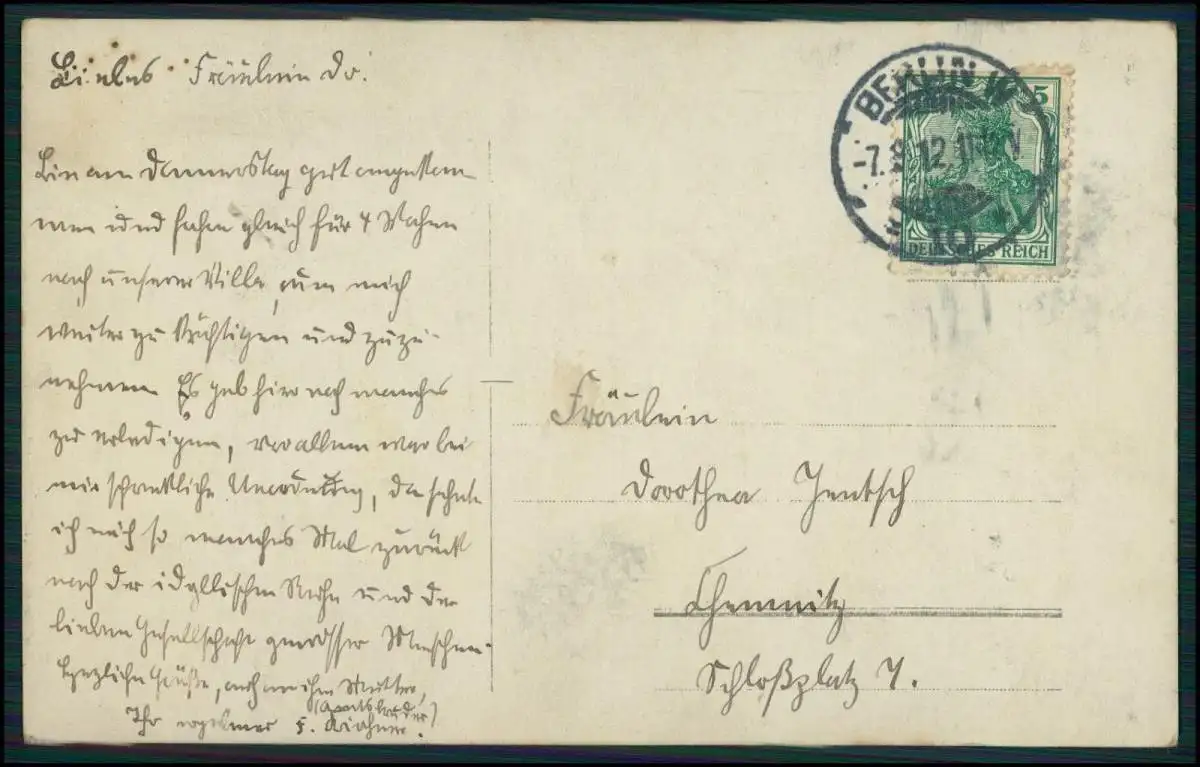 Liebes Fräulein Do.
Bin am Donnerstag gut angekom
men und fahre gleich für 4 Wochen
nach unserer Villa, um mich
weiter zu kräftigen und zuzu-
nehmen. Es gab hier noch manches
zu erledigen, vor allem war bei
mir schreckliche Unordnung, da sehnte
ich mich so manches Mal zurück
nach der idyllischen Ruhe und der
lieben Gesellschaft gewisser Menschen.
Herzliche Grüße, auch an Ihre Mutter,
Ihr ergebener
BERLIN W
-7.8.12.
10
5
DEUTSCHES REICH
Fräulein
Dorothea Jentsch
Chemnitz
Schloßplatz 7.